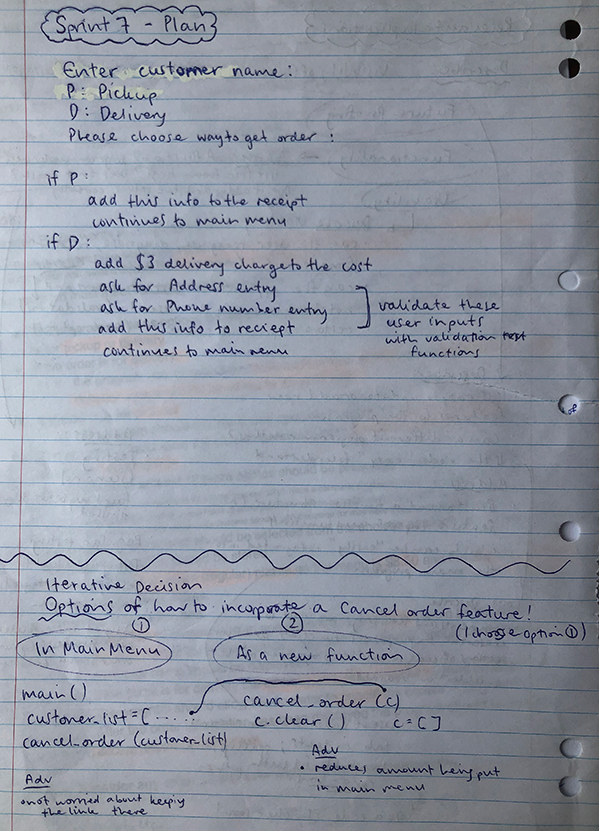 Sprint 7 - Plan
Enter customer name :
P : Pickup
D : Delivery
Please choose way to get order :
if P :
add this info to the receipt
continues to main menu
if D :
add $3 delivery charge to the cost
ask for Address entry
ask for Phone number entry
add this info to reciept
continues to main menu
validate these
user inputs
with validation
functions
Iterative Decision
Options of how to incorporate a Cancel order feature!
(I choose option ①)
① ②
In Main Menu As a new function
main()
customer_list = [ .....
cancel_order (customer_list)
cancel_order (c)
c.clear() c = [ ]
Adv
• not worried about keepiy
the link there
Adv
• reduces amount being put
in main menu